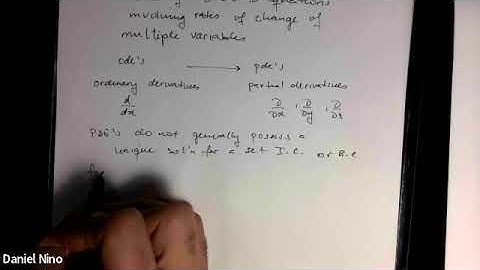 equations
involving rates of change of
multiple variables
ode's → pde's
ordinary derivatives partial derivatives
d/dx ∂/∂x , ∂/∂y , ∂/∂t
PDE's do not generally possess a
unique sol'n for a set I.C. or B.C
for
Daniel Nino